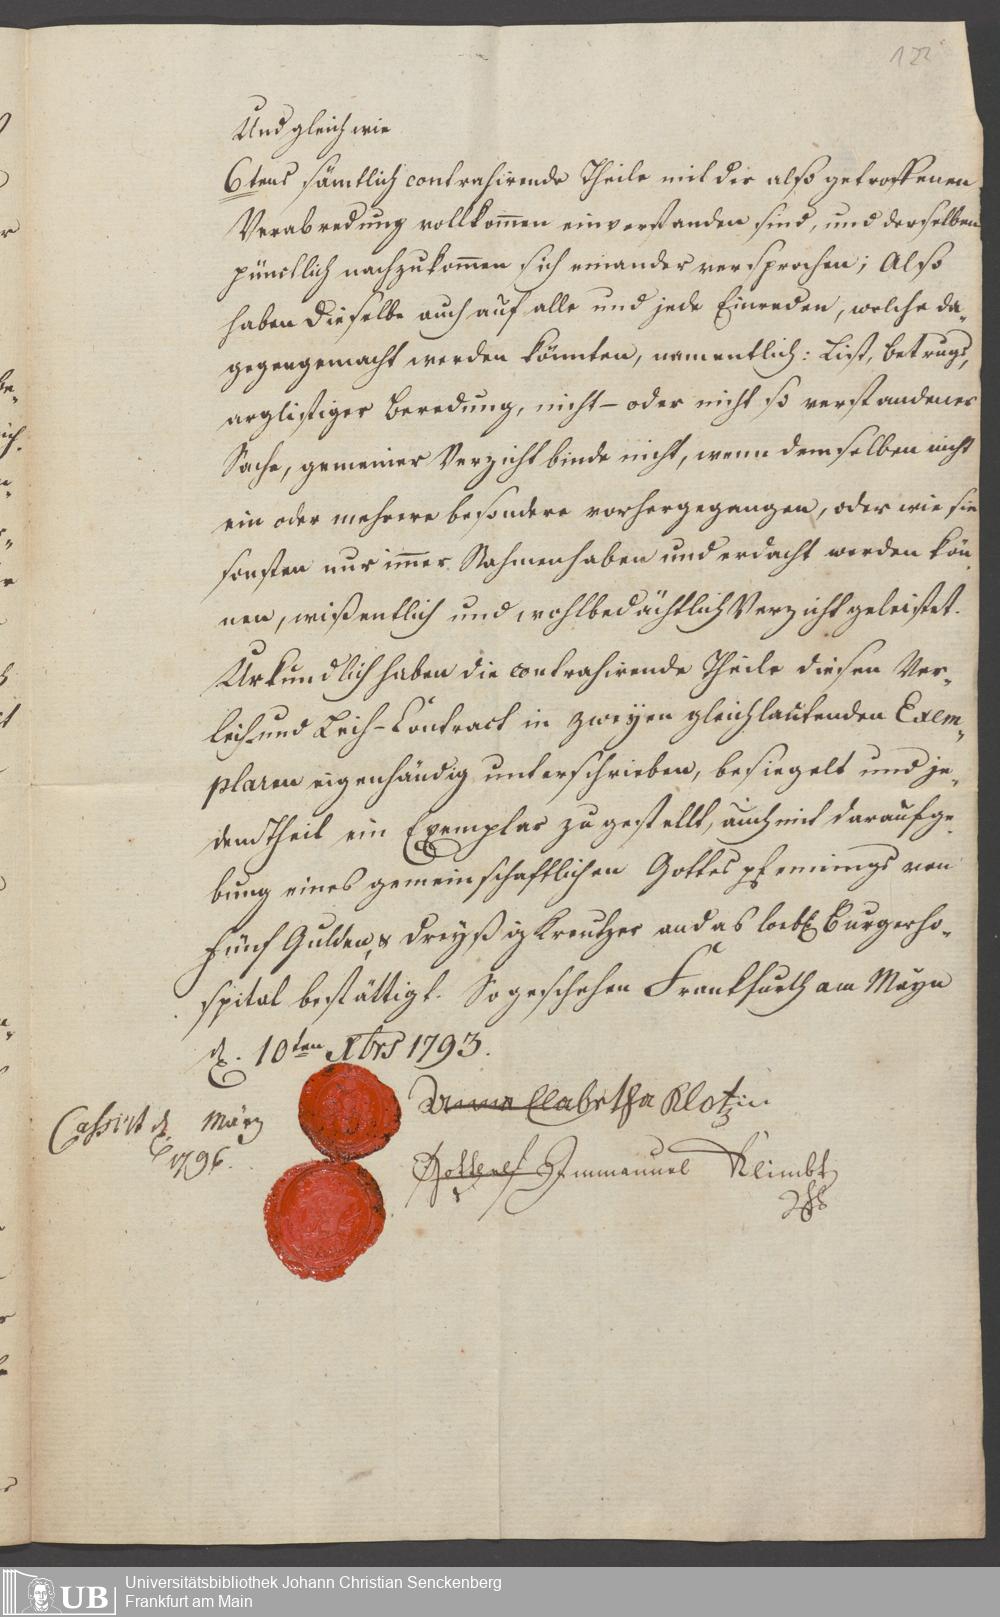 122
Und gleich wie
6tens sämtlich contrahirende Theile mit der also getroffenen
Verabredung vollkom̅en einverstanden sind, und derselben
pünctlich nachzukom̅en sich einander versprochen; Also
haben dieselbe auch auf alle und jede Einreden, welche da„
gegen gemacht werden könnten, namentlich: List, betrugs,
arglistiger beredung, nicht – oder nicht so verstandener
Sache, gemeiner Verzicht binde nicht, wenn demselben nicht
ein oder mehrere besondere vorhergegangen, oder wie sie
sonsten nur im̅er Nahmen haben und erdacht werden kön„
nen, wißentlich und wohlbedächtlich Verzicht geleistet.
Urkundlich haben die contrahirende Theile diesen Ver„
leih- und Leih-Contract in zweyen gleichlautenden Exem„
plaren eigenhändig unterschrieben, besiegelt und je„
dem Theil ein Exemplar zugestellt, auch mit daraufge„
bung eines gemeinschaftlichen Gottespfennings von
Fünf Gulden, & dreyßig Kreutzer an das loebl Burgerho„
spital bestättigt. So geschehen Franckfurth am Mayn
d. 10ten Xbrs 1793.
Anna Elabetha Klotzin
Cassirt d. März
1796.
Gotthelf Immanuel Klimbt
UB
Universitätsbibliothek Johann Christian Senckenberg
Frankfurt am Main